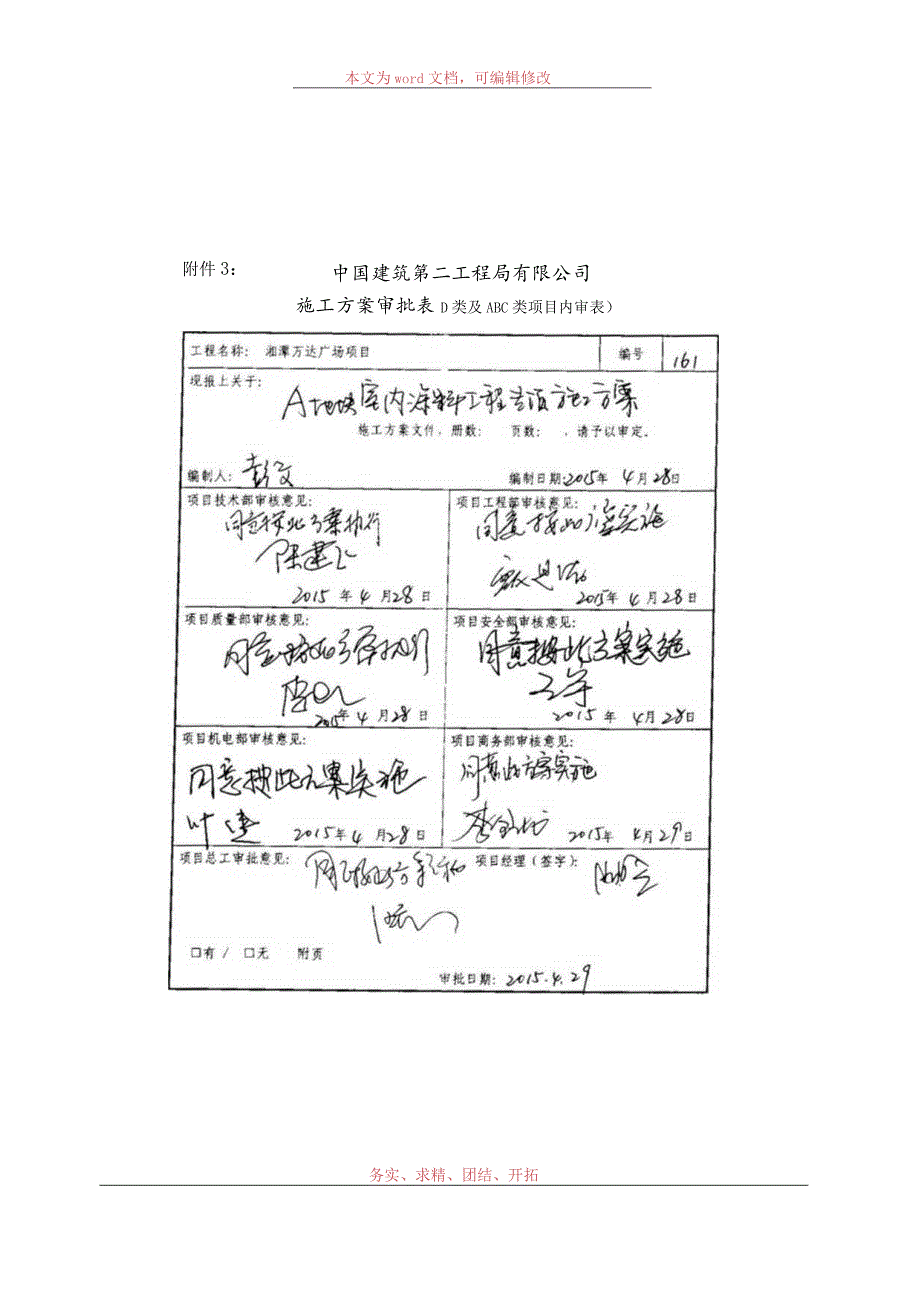 本文为word文档，可编辑修改
附件3： 中国建筑第二工程局有限公司
施工方案审批表 D类及ABC类项目内审表）
工程名称： 湘潭万达广场项目 编号 161
现报上关于：
A地块室内涂料工程专项施工方案
施工方案文件，册数： 页数： ，请予以审定。
编制人： 彭文 编制日期：2015年 4月28日
项目技术部审核意见： 项目工程部审核意见：
同意按此方案执行 同意按此方案实施
陈建
2015年4月28日 2015年4月28日
项目质量部审核意见： 项目安全部审核意见：
同意按此方案执行 同意按此方案实施
2015年4月28日 2015年 4月28日
项目机电部审核意见： 项目商务部审核意见：
同意按此方案实施 同意此方案实施
叶建 2015年4月28日 李 2015年 4月29日
项目总工审批意见： 同意按此方案 项目经理（签字）：
□有 / □无 附页
审批日期： 2015.4.29
务实、求精、团结、开拓